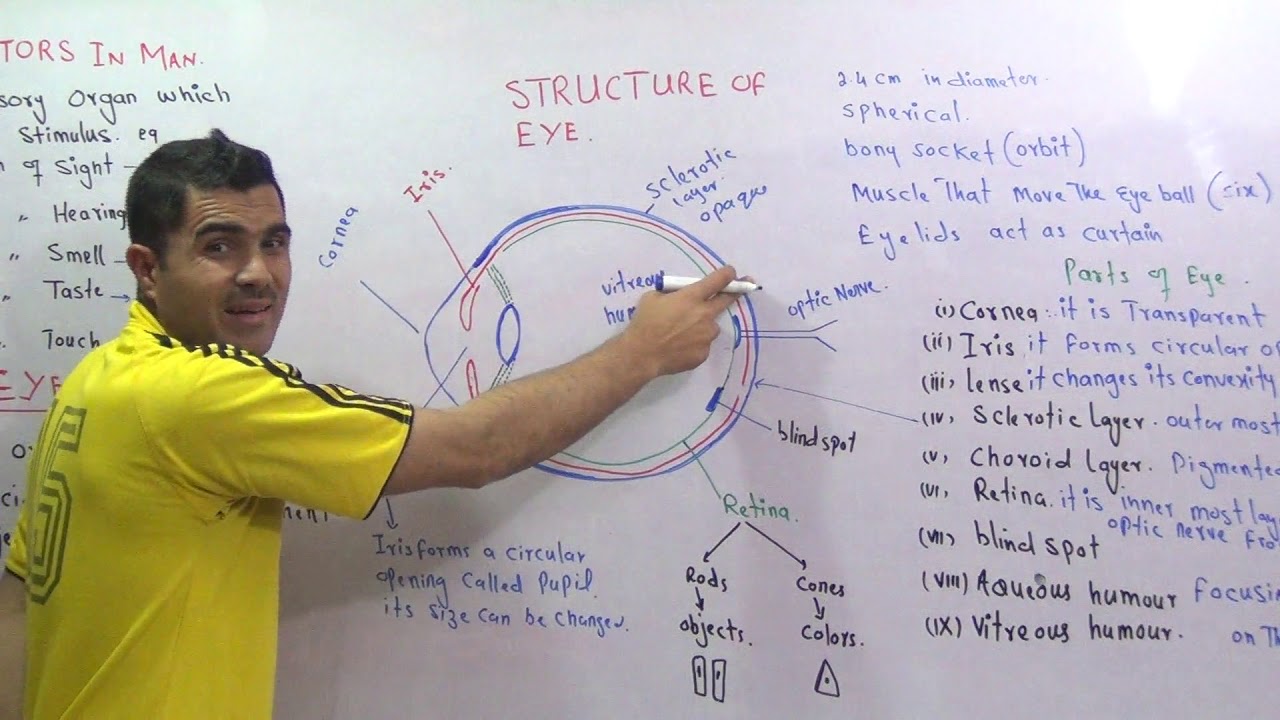 TORS IN MAN.
sory Organ which
Stimulus. eg
of Sight
" Hearing
" Smell
" Taste
Touch
EYE
STRUCTURE OF
EYE.
Cornea
Iris.
Sclerotic
layer.
opaque
vitreous
optic Nerve.
blind spot
Retina.
Rods
Cones
objects.
Colors.
Iris forms a circular
opening called Pupil.
its size can be changed.
2.4 cm in diameter.
spherical.
bony socket (orbit)
Muscle That move The Eye ball (six)
Eyelids act as curtain
Parts of Eye.
(i) Cornea: it is Transparent
(ii) Iris it forms circular
(iii) Lense it changes its convexity
(iv) Sclerotic Layer. outer most
(v) Choroid Layer. Pigmented
(vi) Retina. it is inner most lay
optic nerve
(vii) blind spot
(VIII) Aqueous humour
(IX) Vitreous humour. on
6